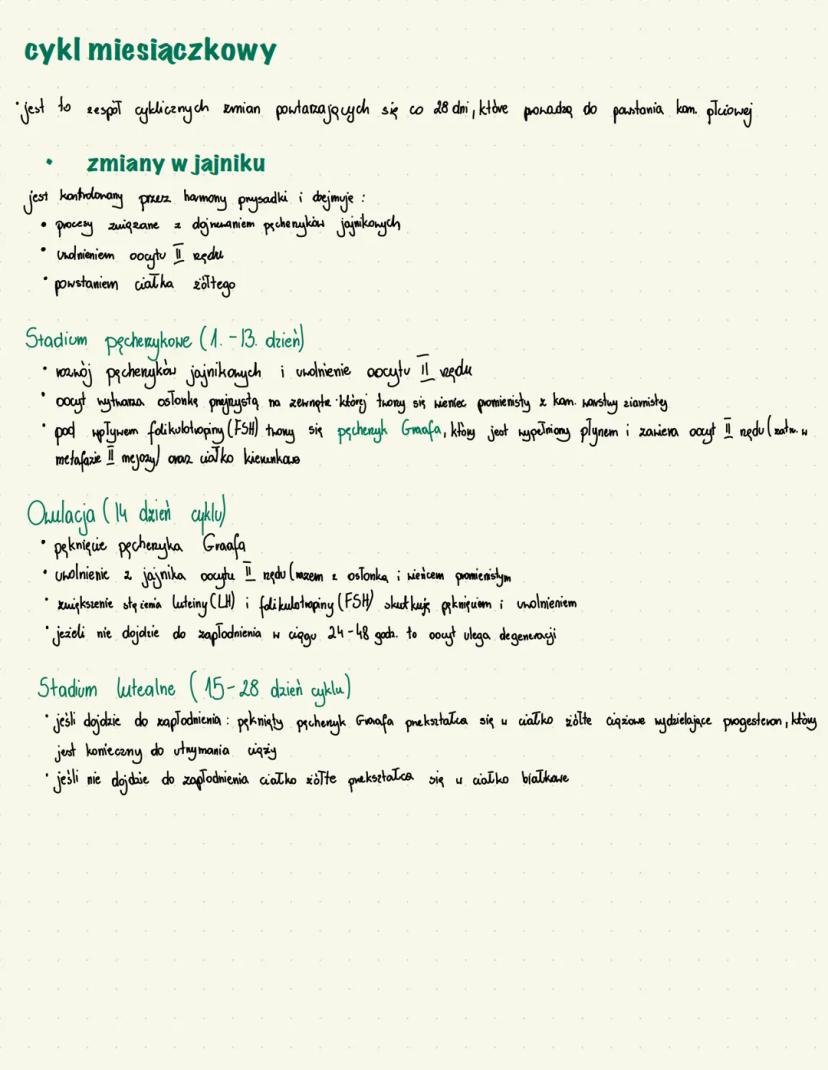 cykl miesiączkowy
• jest to zespół cyklicznych zmian powtarzających się co 28 dni, które prowadzą do powstania kom. płciowej
• zmiany w jajniku
jest kontrolowany przez hormony przysadki i obejmuje :
• procesy związane z dojrzewaniem pęcherzyków jajnikowych
• uwolnieniem oocytu II rzędu
• powstaniem ciałka żółtego
Stadium pęcherzykowe (1.-13. dzień)
• rozwój pęcherzyków jajnikowych i uwolnienie oocytu II rzędu
• oocyt wytwarza osłonkę przejrzystą na zewnątrz której tworzy się wieniec promienisty z kom. warstwy ziarnistej
• pod wpływem folikulotropiny (FSH) tworzy się pęcherzyk Graafa, który jest wypełniony płynem i zawiera oocyt II rzędu (zatrz. w
metafazie II mejozy) oraz ciałko kierunkowe
Owulacja (14 dzień cyklu)
• pęknięcie pęcherzyka Graafa
• uwolnienie z jajnika oocytu II rzędu (razem z osłonką i wieńcem promienistym
• zwiększenie stężenia luteiny (LH) i folikulotropiny (FSH) skutkuje pęknięciem i uwolnieniem
• jeżeli nie dojdzie do zapłodnienia w ciągu 24-48 godz. to oocyt ulega degeneracji
Stadium lutealne (15-28 dzień cyklu)
• jeśli dojdzie do zapłodnienia : pęknięty pęcherzyk Graafa przekształca się w ciałko żółte ciążowe wydzielające progesteron, który
jest konieczny do utrzymania ciąży
• jeśli nie dojdzie do zapłodnienia ciałko żółte przekształca się w ciałko białkowe